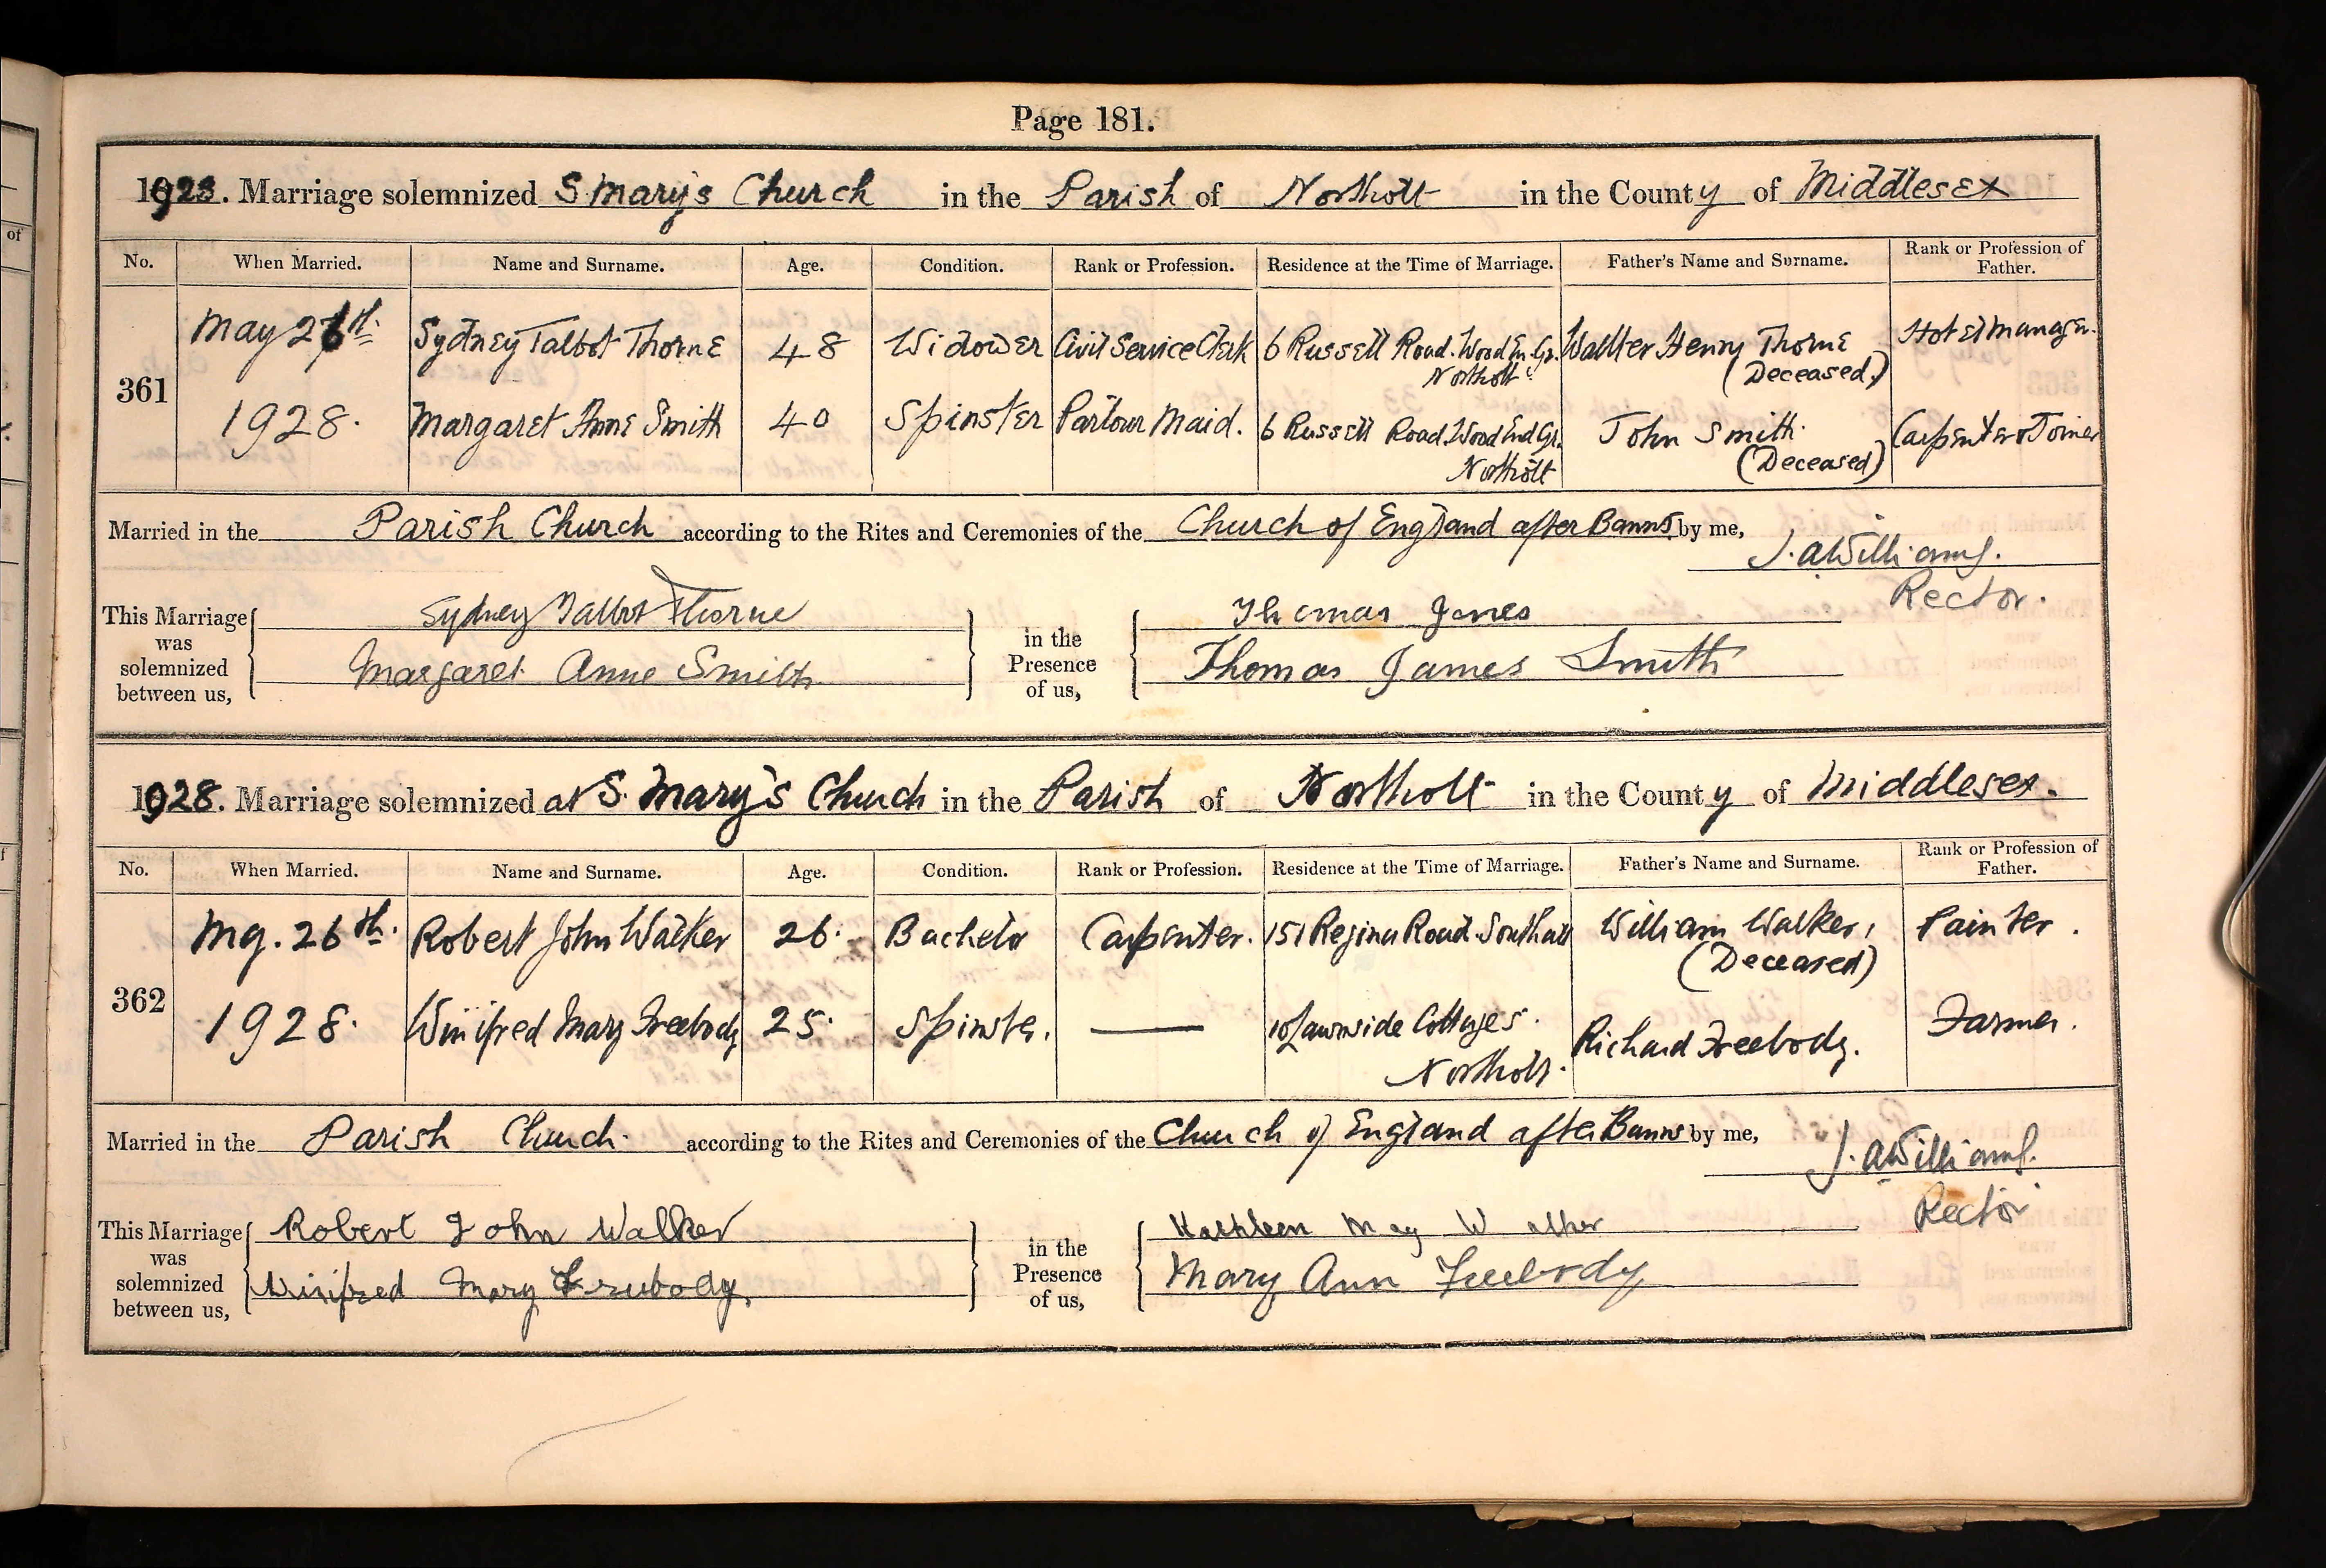 Page 181.
1928. Marriage solemnized S. Mary's Church in the Parish of Northolt in the County of Middlesex
No. When Married. Name and Surname. Age. Condition. Rank or Profession. Residence at the Time of Marriage. Father's Name and Surname. Rank or Profession of Father.
361 May 26th. 1928. Sydney Talbot Thorne 48 Widower Civil Service Clerk 6 Russell Road. Wood En. Gr. Northolt Walter Henry Thorne (Deceased) Hotel Manager.
Margaret Anne Smith 40 Spinster Parlour Maid. 6 Russell Road. Wood End Gr. Northolt John Smith (Deceased) Carpenter & Joiner
Married in the Parish Church according to the Rites and Ceremonies of the Church of England after Banns by me,
J. A Williams.
Rector.
This Marriage was solemnized between us, Sydney Talbot Thorne in the Presence of us, Thomas Jones
Margaret Anne Smith Thomas James Smith
1928. Marriage solemnized at S. Mary's Church in the Parish of Northolt in the County of Middlesex.
No. When Married. Name and Surname. Age. Condition. Rank or Profession. Residence at the Time of Marriage. Father's Name and Surname. Rank or Profession of Father.
362 26th. 1928. Robert John Walker 26. Bachelor Carpenter. 151 Regina Road. Southall William Walker, (Deceased) Painter.
Winifred Mary Freebody 25. Spinster. — 10 Lawnside Cottages. Northolt. Richard Freebody. Farmer.
Married in the Parish Church. according to the Rites and Ceremonies of the Church of England after Banns by me,
J. A Williams.
Rector
This Marriage was solemnized between us, Robert John Walker in the Presence of us, Kathleen May Walker
Winifred Mary Freebody. Mary Ann Freebody